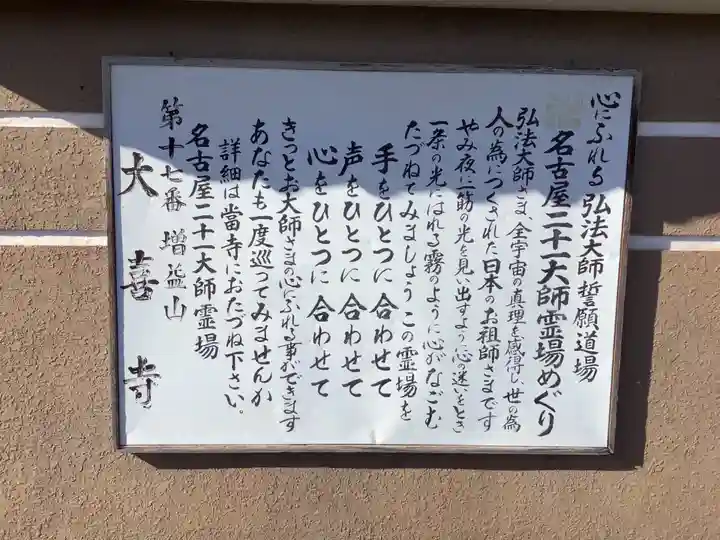 心にふれる 弘法大師誓願道場
名古屋二十一大師霊場めぐり
弘法大師さま、全宇宙の真理を感得し、世の為
人の為につくされた日本のお祖師さまです
やみ夜に一筋の光を見い出すよう心の迷いをとき
一条の光にはれる霧のように心がなごむ
たづねてみましょう この霊場を
手をひとつに合わせて
声をひとつに合わせて
心をひとつに合わせて
きっとお大師さまの心にふれる事ができます
あなたも一度巡ってみませんか
詳細は當寺におたづね下さい。
名古屋二十一大師霊場
第十七番 増益山
大喜寺